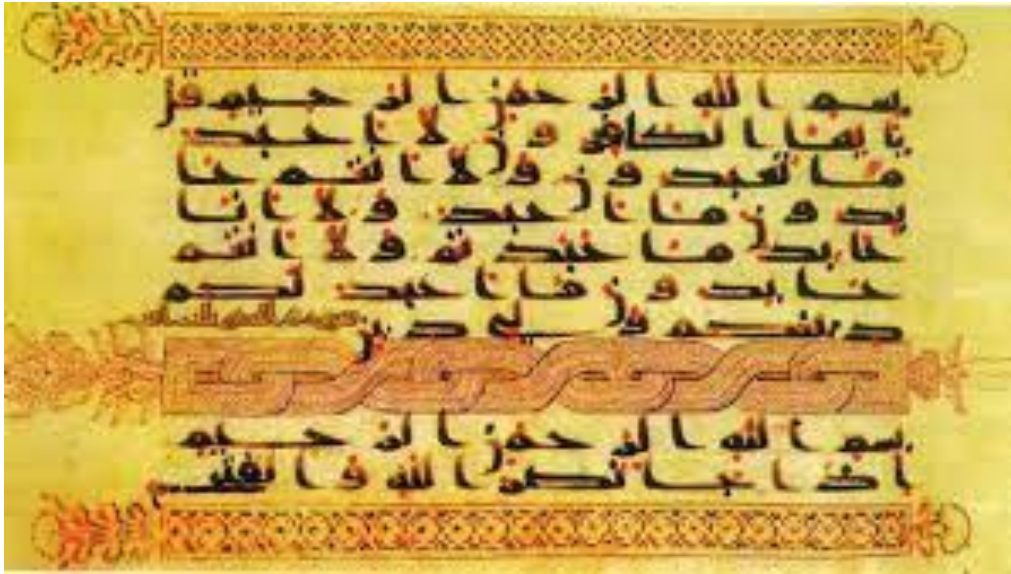 بسم الله الرحمن الرحيم قل
يايها الكافرون لا اعبد
ما تعبدون ولا انتم عا
بدون ما اعبد ولا انا
عابد ما عبدتم ولا انتم
عابدون ما اعبد لكم
دينكم ولي دين
بسم الله الرحمن الرحيم
اذا جا نصر الله والفتح